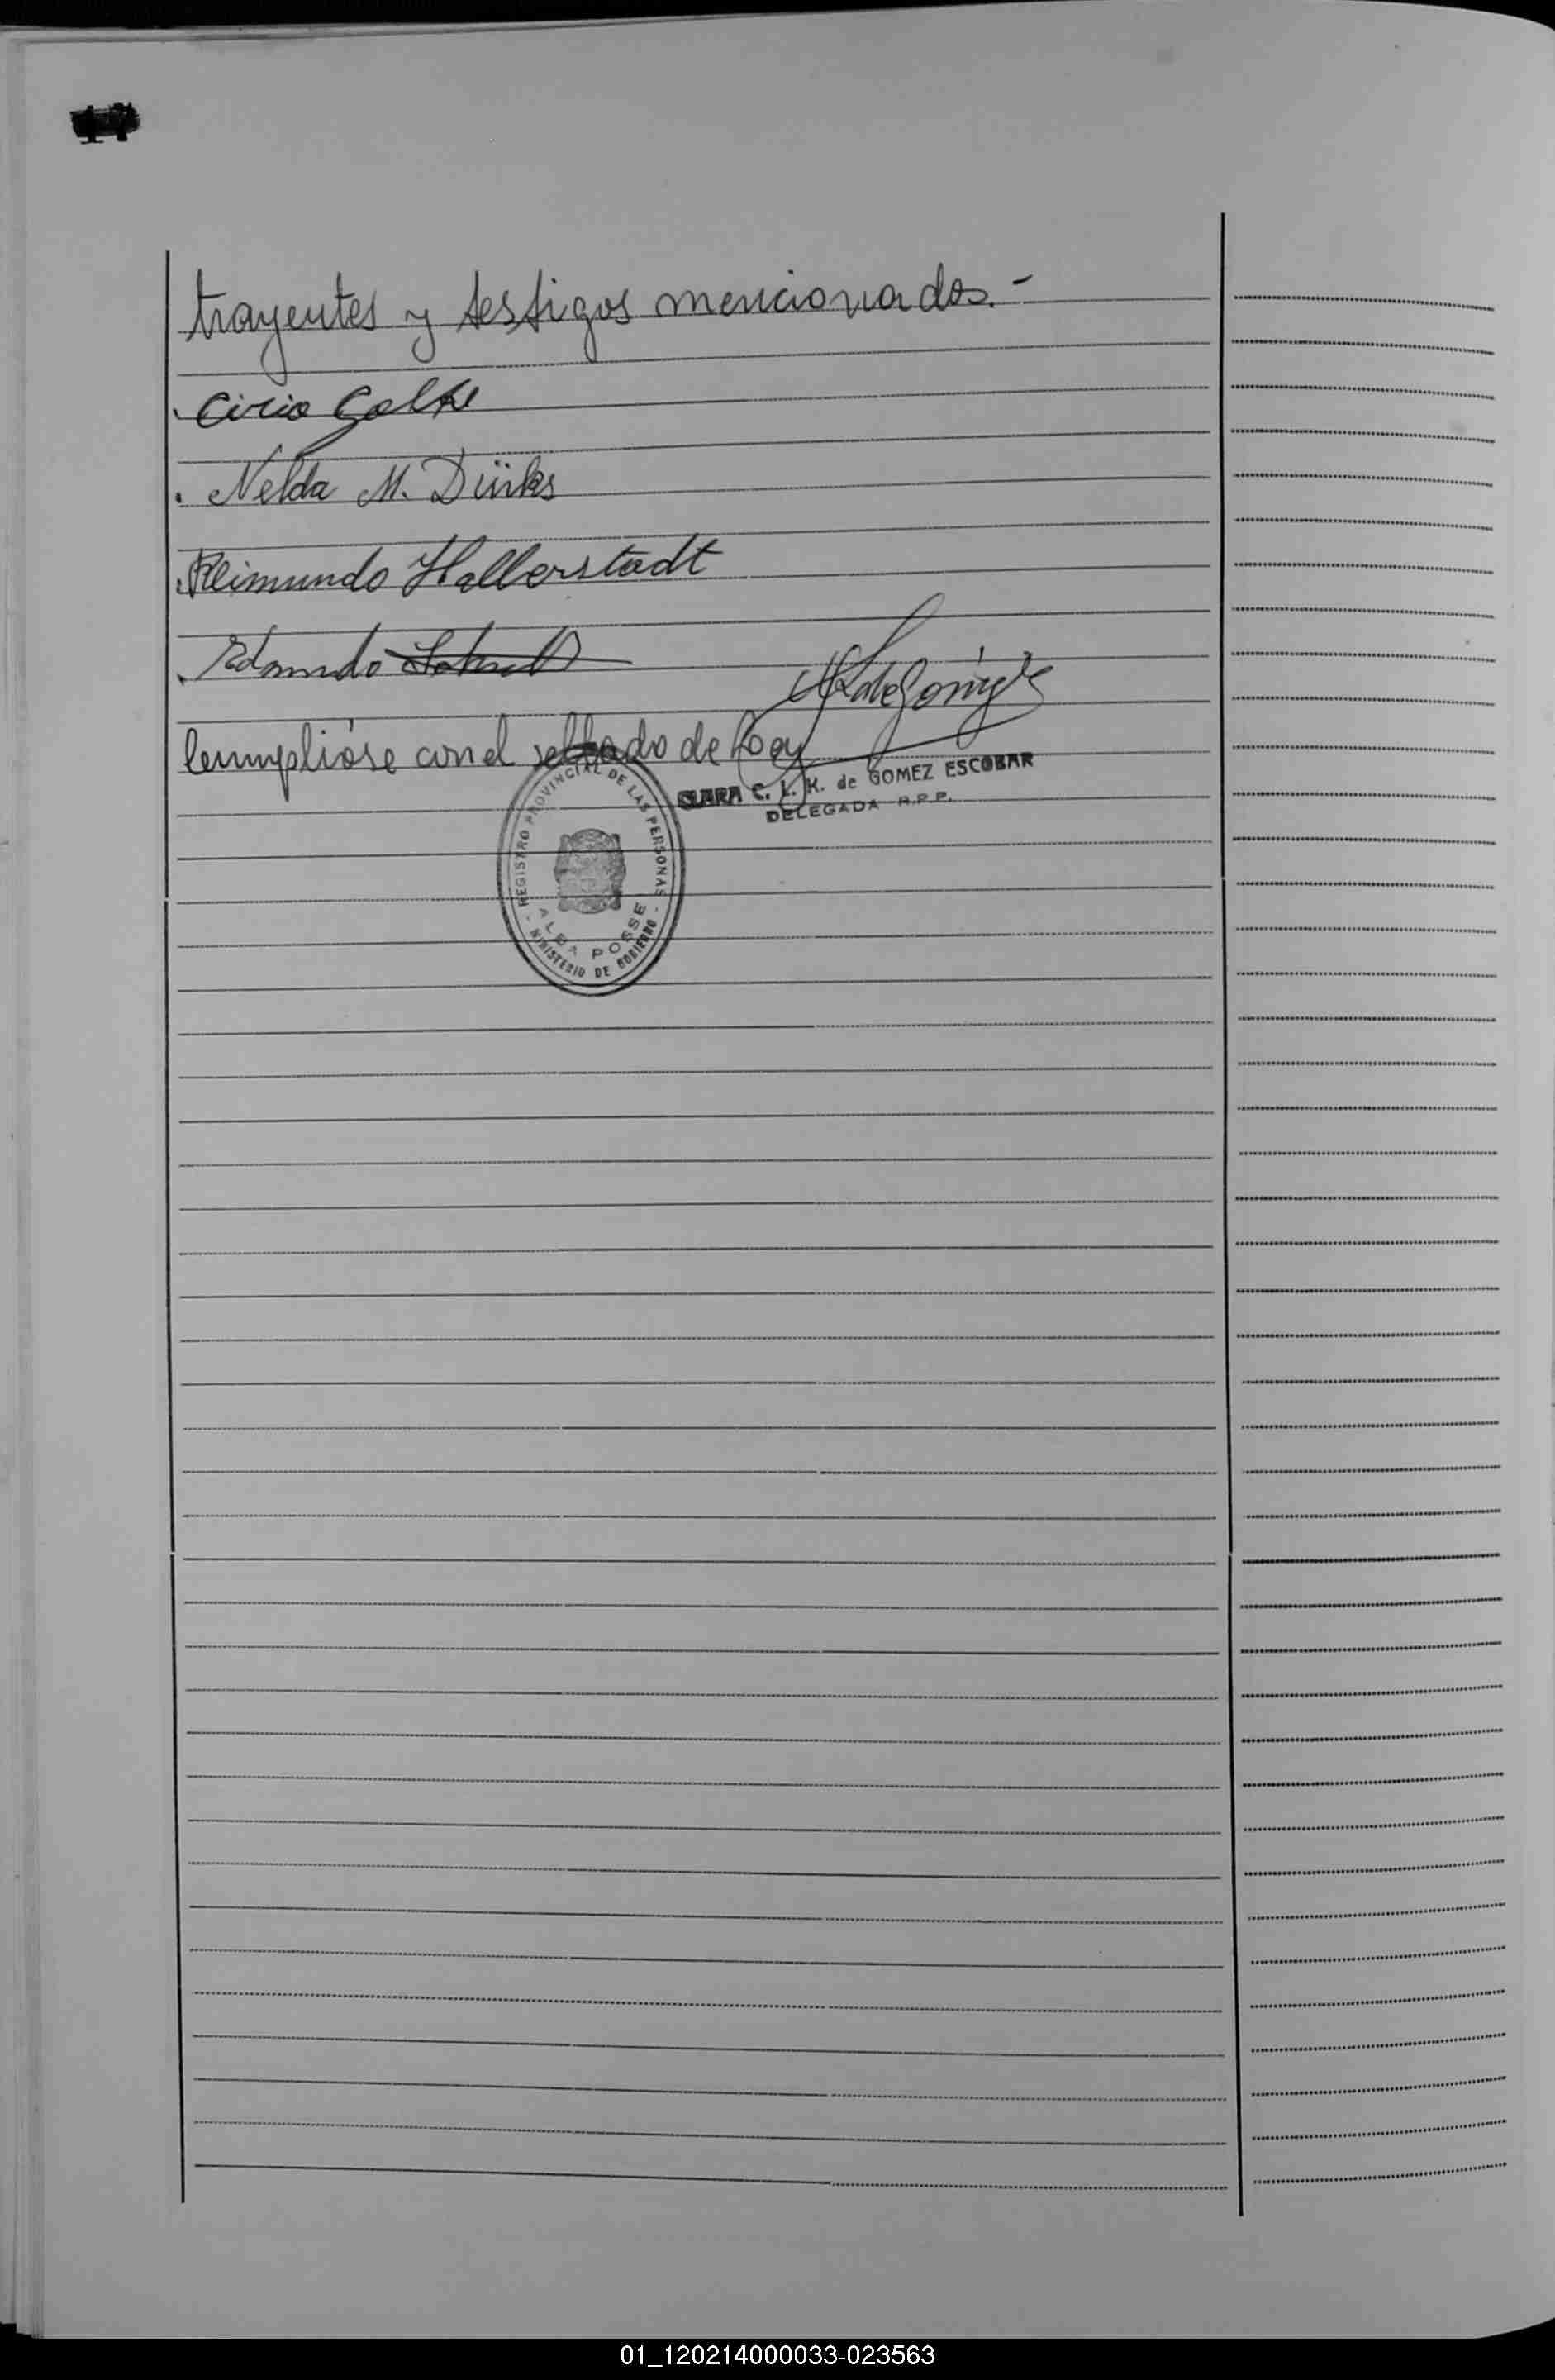 trayentes y testigos mencionados.-
Cirio Golke
Nelda M. Dünks
Reimundo Hallerstadt
Edmundo
Cumplióse con el sellado de Ley
CLARA C. L. K. de GOMEZ ESCOBAR
DELEGADA R.P.P.
REGISTRO PROVINCIAL DE LAS PERSONAS
ALBA POSSE
- MINISTERIO DE GOBIERNO -
01_120214000033-023563